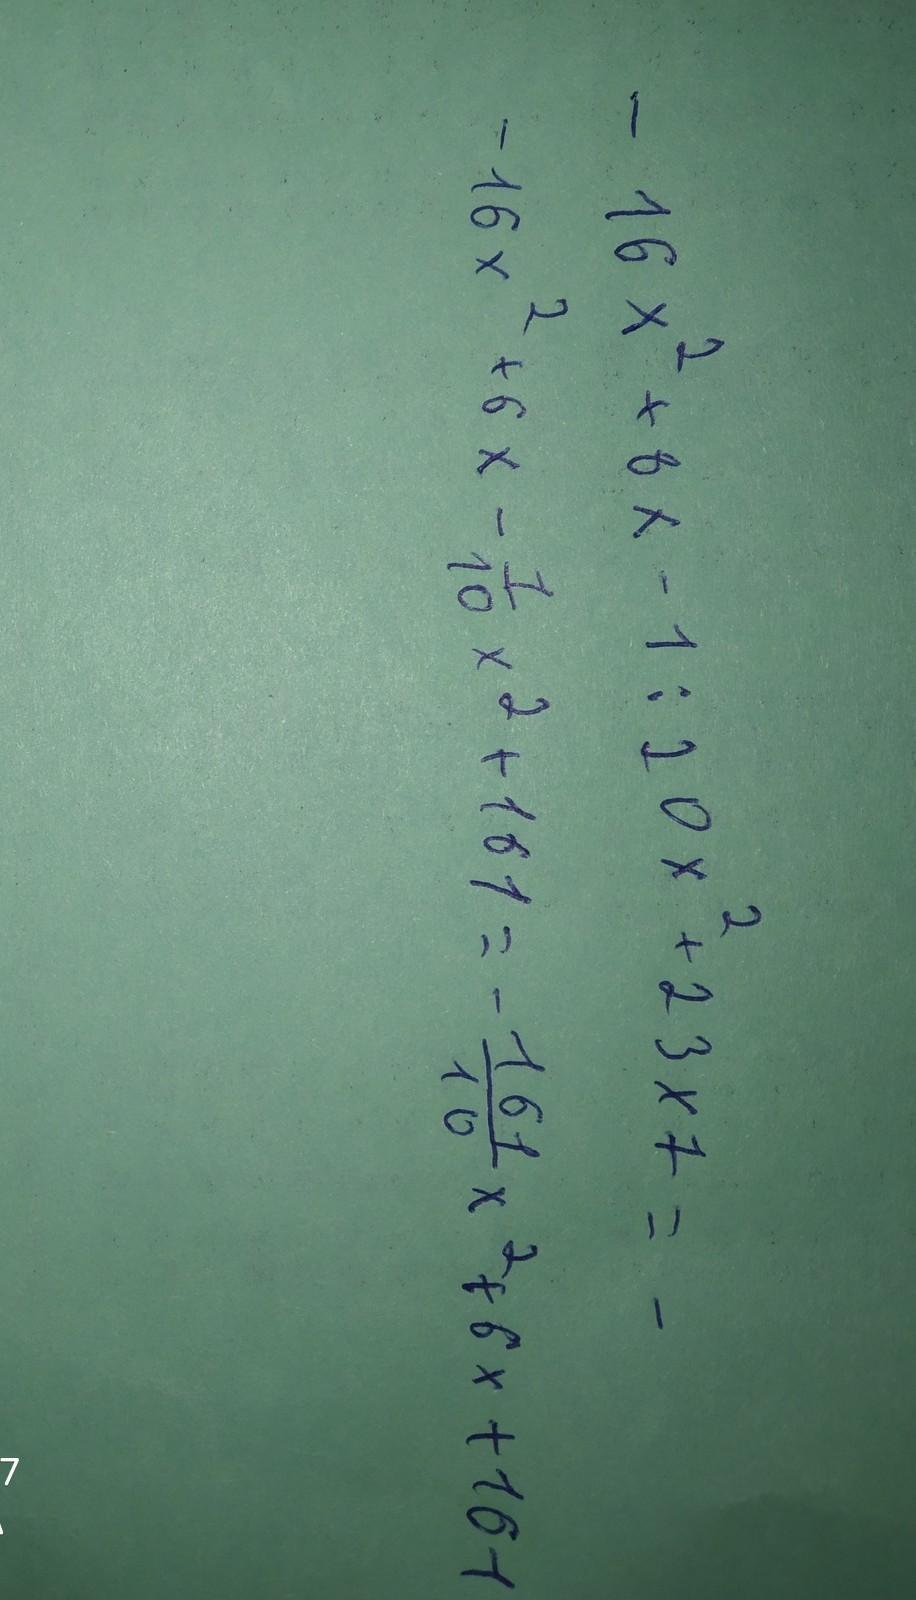 - 16x² + 6x - 1 : 10x² + 23x7 = -
- 16x² + 6x - 1/10 x² + 161 = - 161/10 x² + 6x + 161
7